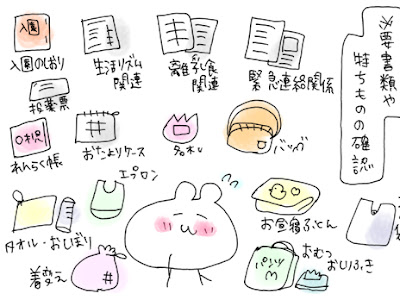 必要書類や
持ちものの確認
入園
入園のしおり
生活リズム
関連
離乳食
関連
緊急連絡関係
投薬票
0才児
れんらく帳
おたよりケース
名札
バッグ
エプロン
タオル・おしぼり
お昼寝ふとん
着替え
パンツ
M
おむつ
おしりふき